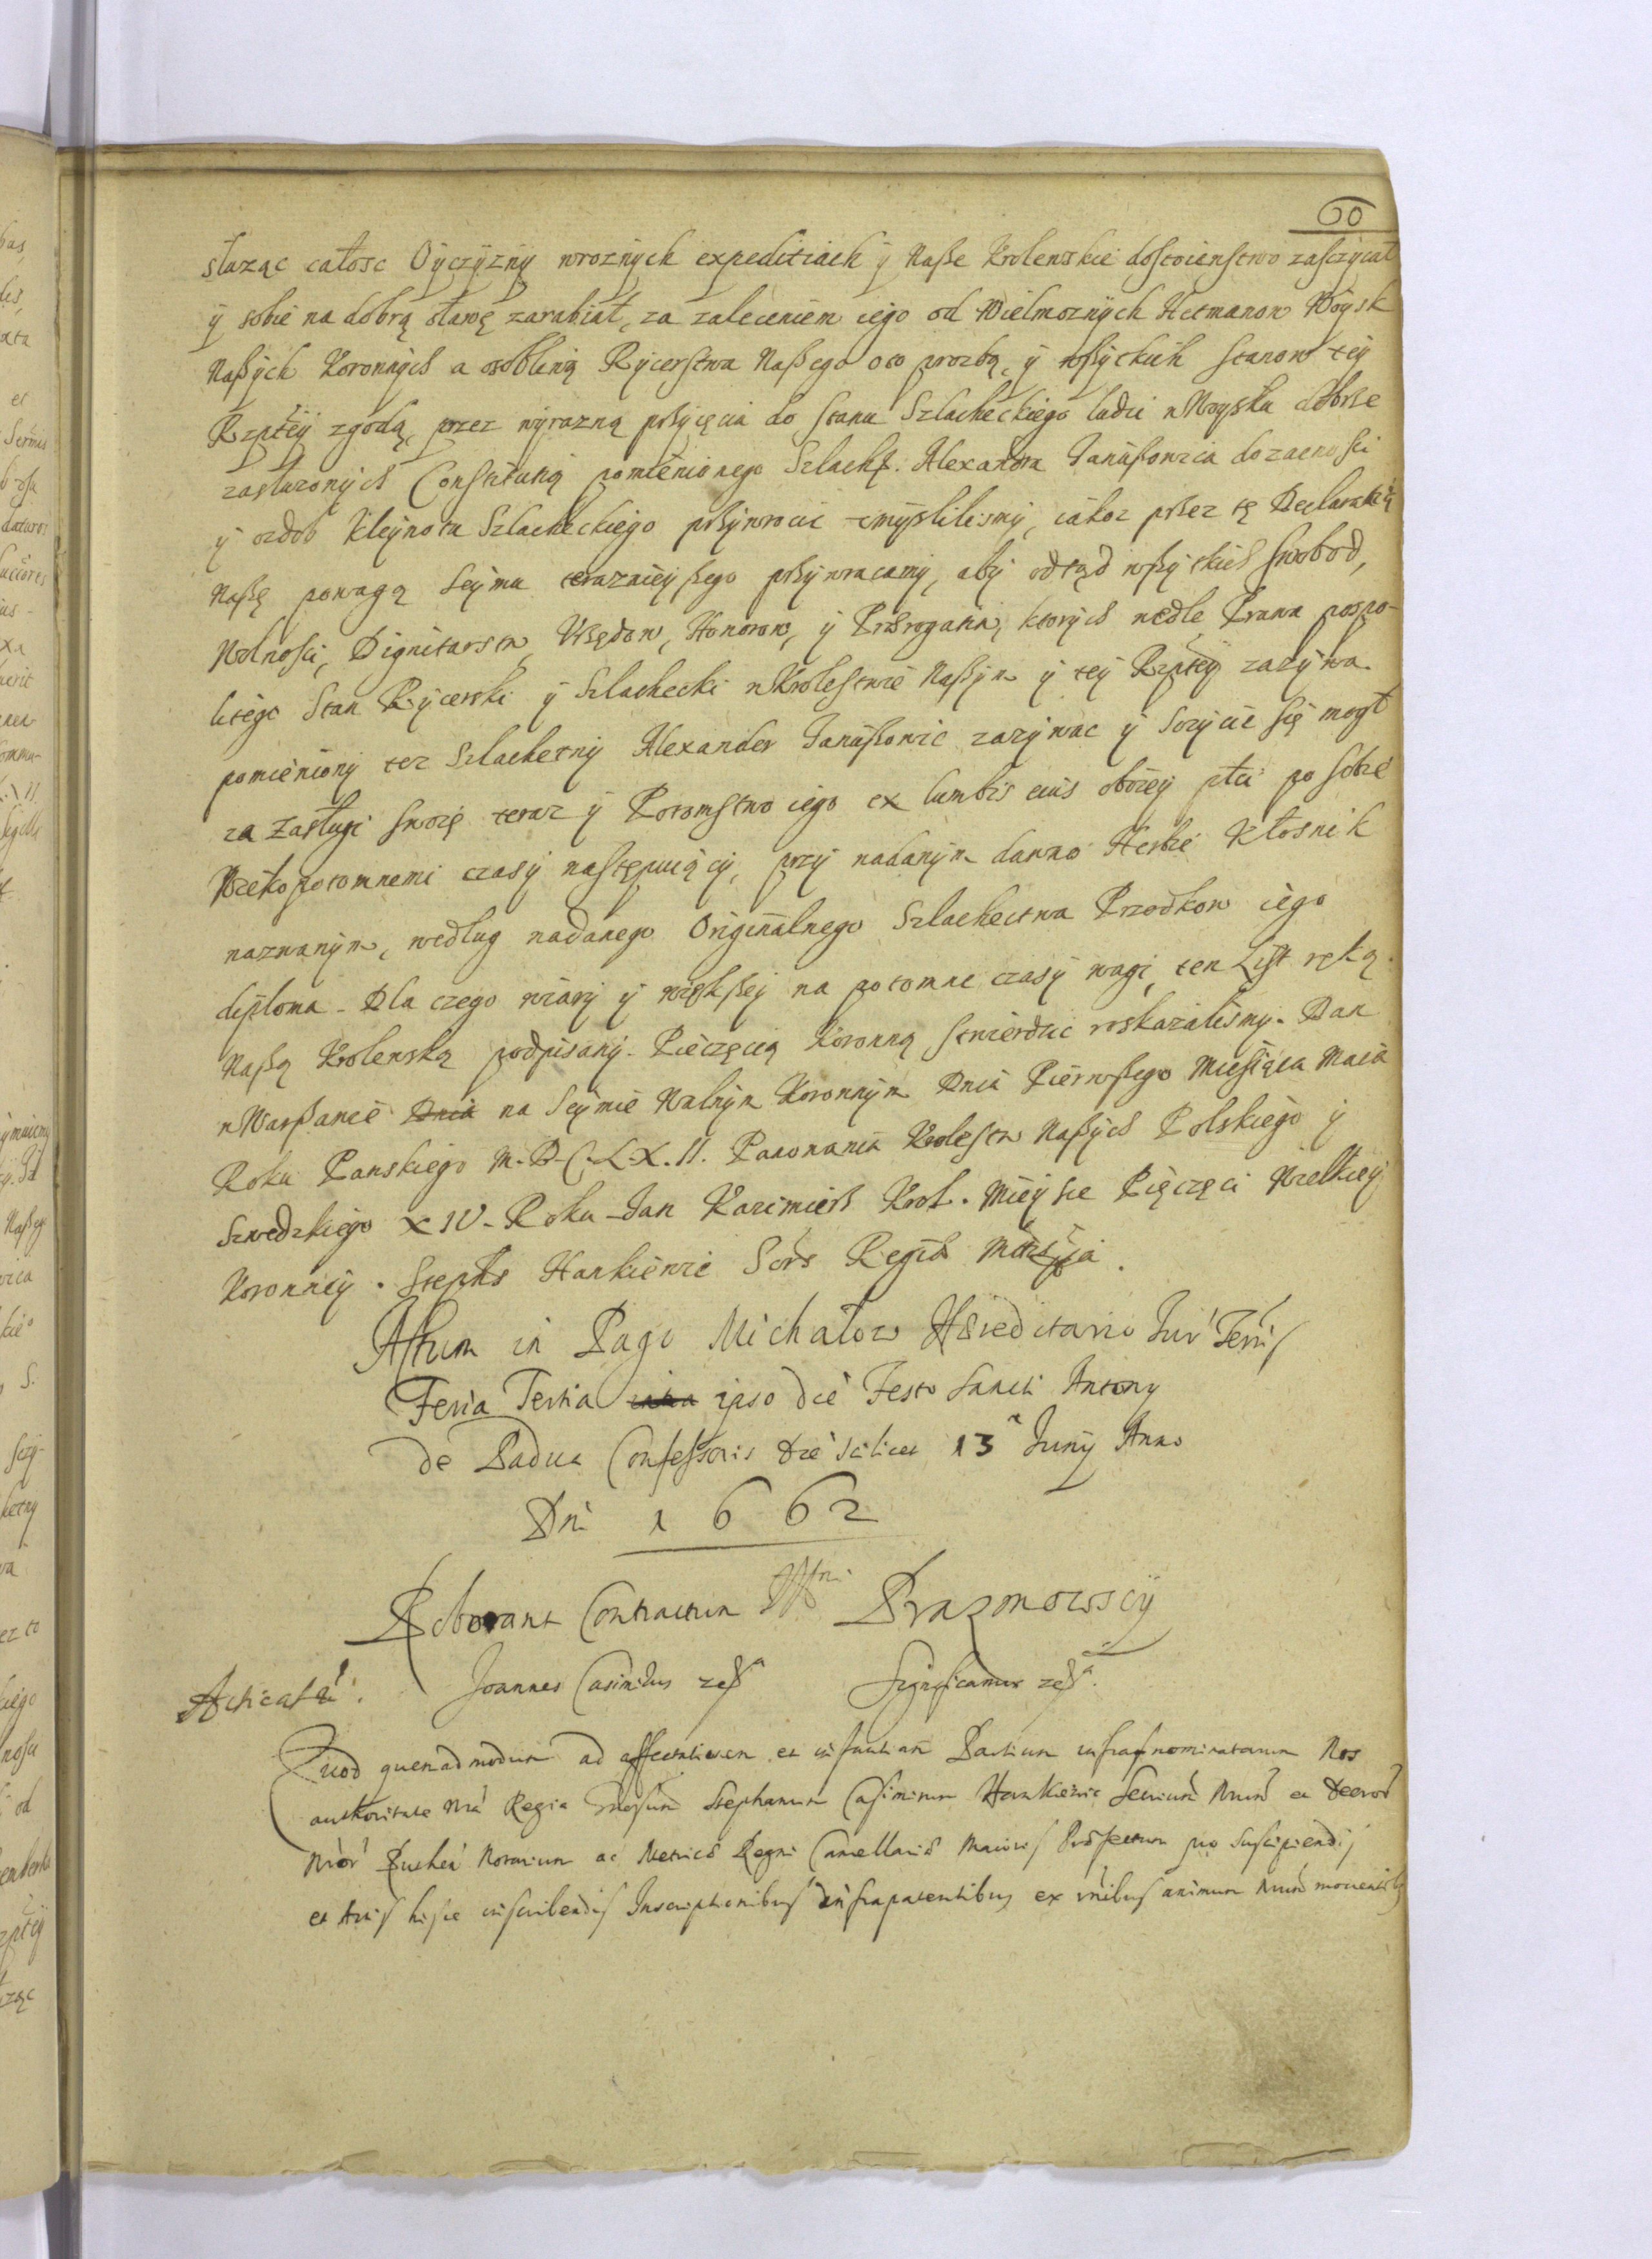 60
słuząc całosc Oyczyzny wroznych expeditiach y Naße Krolewskie dostoienstwo zasczycał
y sobie na dobrą sławę zarabiał, za zaleceniem iego od Wielmoznych Hetmanow Woysk
Naßych Koronnych a osobliwą Rycerstwa Naßego oto prozbą, y wßytkich Stanow tey
Rzptey zgodą, przez wyrazną przyięcia do Stanu Szlacheckiego ludzi w Woysku dobrze
zasłuzonych Constitutią pomienionego Szlachet. Alexandra Janußowica do zacnosci
y ozdob Kleynotu Szlacheckiego przywrocic umyslilismy, iakoz przez tę Declaratią
Naßę powagą Seymu teraznieyßego przywracamy, aby odtąd wßytkich swobod,
Wolnosci, Dignitarstw, Urzędow, Honorow, y Prærogatiw, ktorych wedle Prawa pospo-
litego Stan Rycerski y Szlachecki w Krolestwie Naßym y tey Rzptey zazywa.
pomieniony tez Szlachetny Alexander Janußowic zazywac y szczycic się mogł
za Zasługi swoię teraz y Potomstwo iego ex lumbis eius oboiey płci po sobie
Wiekopotomnemi czasy następuiący, przy nadanym dawno Herbie Kłosnik
nazwanym, według nadanego Originalnego Szlachectwa Przodkow iego
diploma. Dla czego wiary y więkßey na potomne czasy wagi, ten List ręką
Naßą Krolewską podpisany. Pieczęcią Koronną stwierdzic roskazalismy. Dan
w Warßawie Dnia na Seymie Walnym Koronnym Dnia Pierwßego Miesiąca Maia
Roku Panskiego M.D.C.L.X.II. Panowania Krolestw Naßych Polskiego y
Szwedzkiego XIV. Roku Jan Kazimierz Krol. Mieysce Pięczęci Wielkiey
Koronney. Stephs Hankiewic Sers Regiæ Mttis
Actum in Pago Michałow Hæreditario Jur Terris
Feria Tertia ipso die Festo Sancti Antony
de Padua Confessoris die scilicet 13 Juny Anno
Dni 1662
Roborant Contractum Prazmowscy
Acticatâ. Joannes Casimirus Significamus
Quod quemadmodum ad affectationem et instantiam Partium infrascnominatarum Nos
authoritate Nra Regia Stephanum Casimirum Hankiewic Secrium Nrum et Decretor
Nror Notarium ac Metrices Regni Cancellariæ Maioris Præfectum pro suscipiendis
et Actis hisce inscribendis Inscriptionibus infrapatentibus ex animum Nrum moventibus